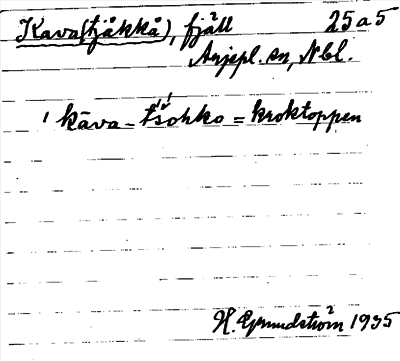 Kava(tjåkkå), fjäll 25a5
Arjepl. sn, Nbl.
' kāva - tšohko = kroktoppen
H. Grundström 1935